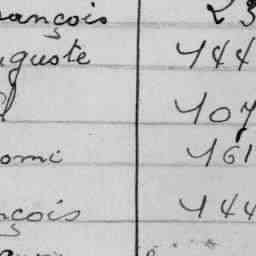 ançois 23
uguste 144
107
omi 161
nçois 144